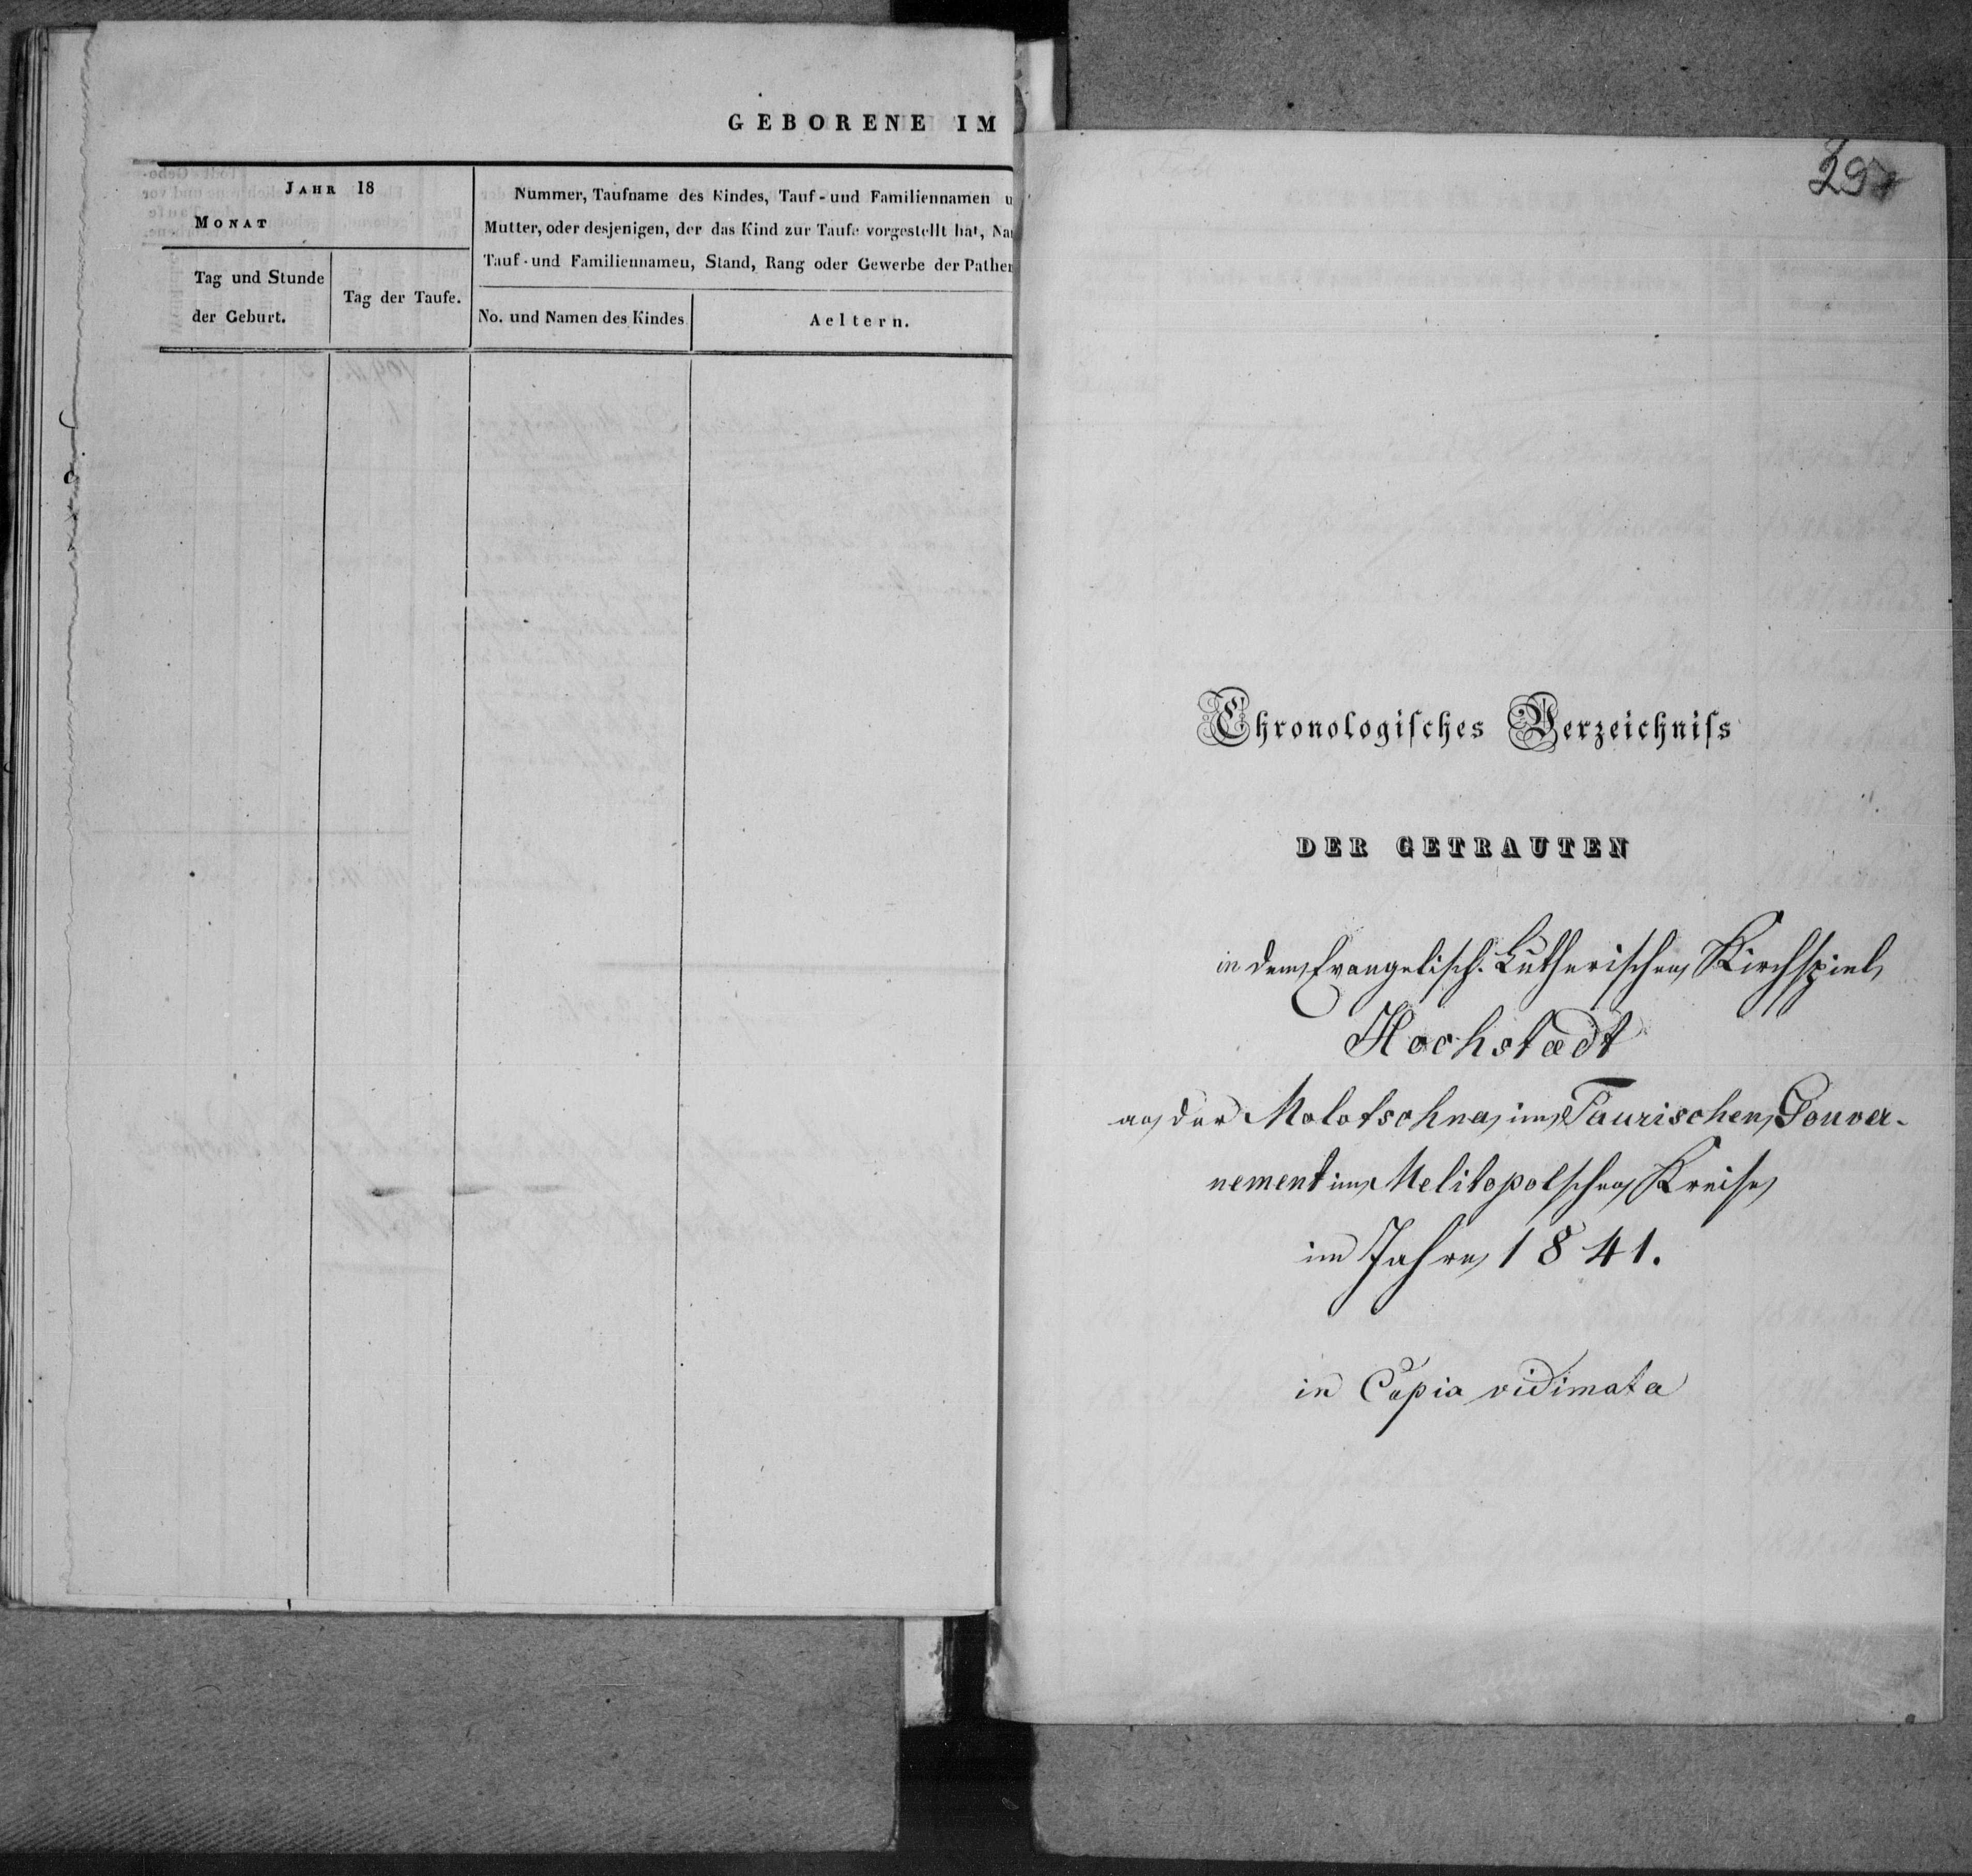 GEBORENE IM
JAHR 18
MONAT
Tag und Stunde
der Geburt.
Tag der Taufe.
Nummer, Taufname des Kindes, Tauf- und Familiennamen u
Mutter, oder desjenigen, der das Kind zur Taufe vorgestellt hat, Na
Tauf- und Familiennamen, Stand, Rang oder Gewerbe der Pathen
No. und Namen des Kindes
Aeltern.
Chronologisches Verzeichniss
DER GETRAUTEN
in dem Evangelisch. Lutherischen Kirchspiel
Hochstædt
an der Molotschna, im Taurischen Gouver-
nement im Melitopolschen Kreise
im Jahre 1841.
in Copia vidimata